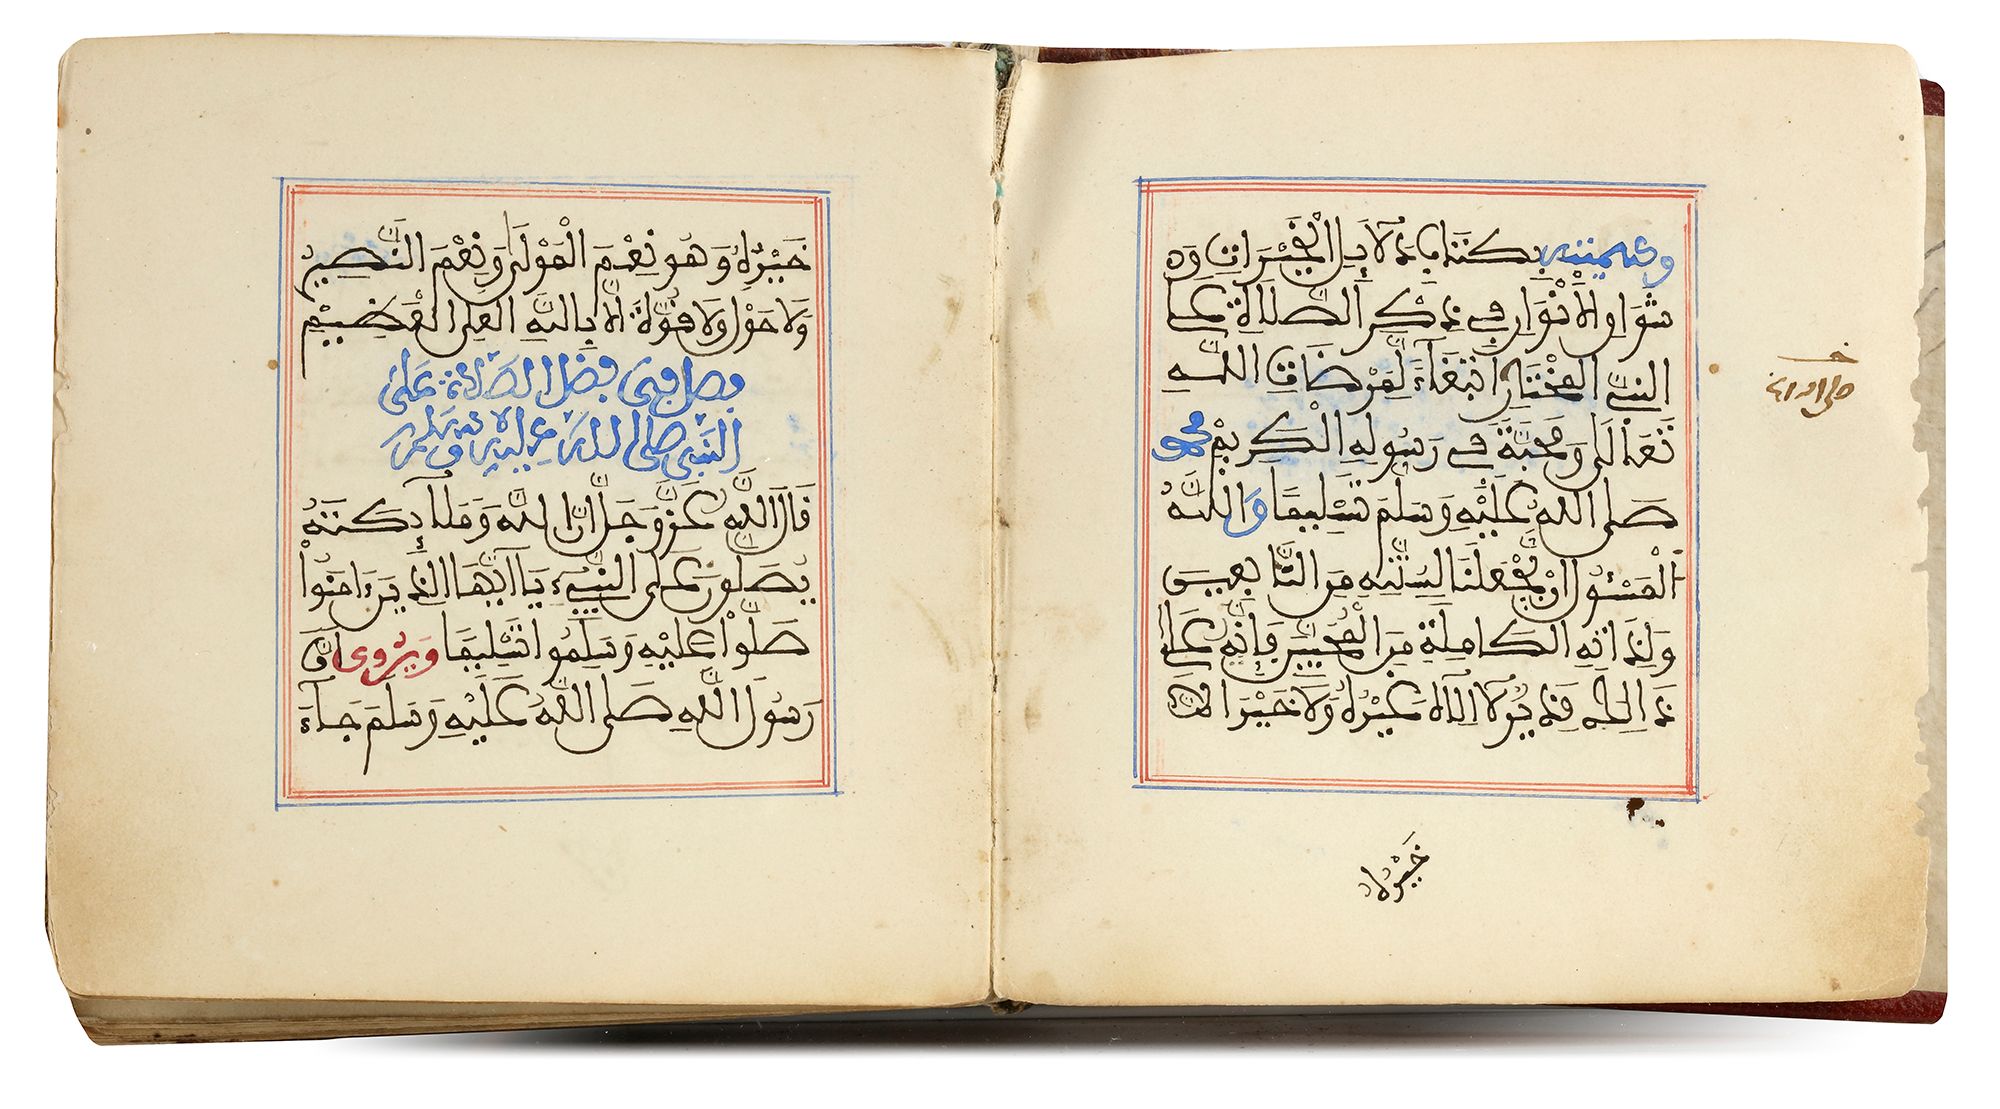 وسميته بكتاب دلائل الخيرات وه
شوارق الانوار في ذكر الصلاة على
النبي المختار ابتغاء لمرضات الله
تعالى ومحبة في رسوله الكريم محمد
صلى الله عليه وسلم تسليما والله
المسئول ان يجعلنا لسنته من التابعين
ولذاته الكاملة من المحبين فإنه على
ذالك قدير لا اله غيره ولا خير الا
خيره
خيره وهو نعم المولى ونعم النصير
ولا حول ولا قوة الا بالله العلي العظيم
فصل في فضل الصلاة على
النبي صلى الله عليه وسلم
قال الله عز وجل ان الله وملآئكته
يصلون على النبيء يا أيها الذين ءامنوا
صلوا عليه وسلموا تسليما ويروى ان
رسول الله صلى الله عليه وسلم جاء